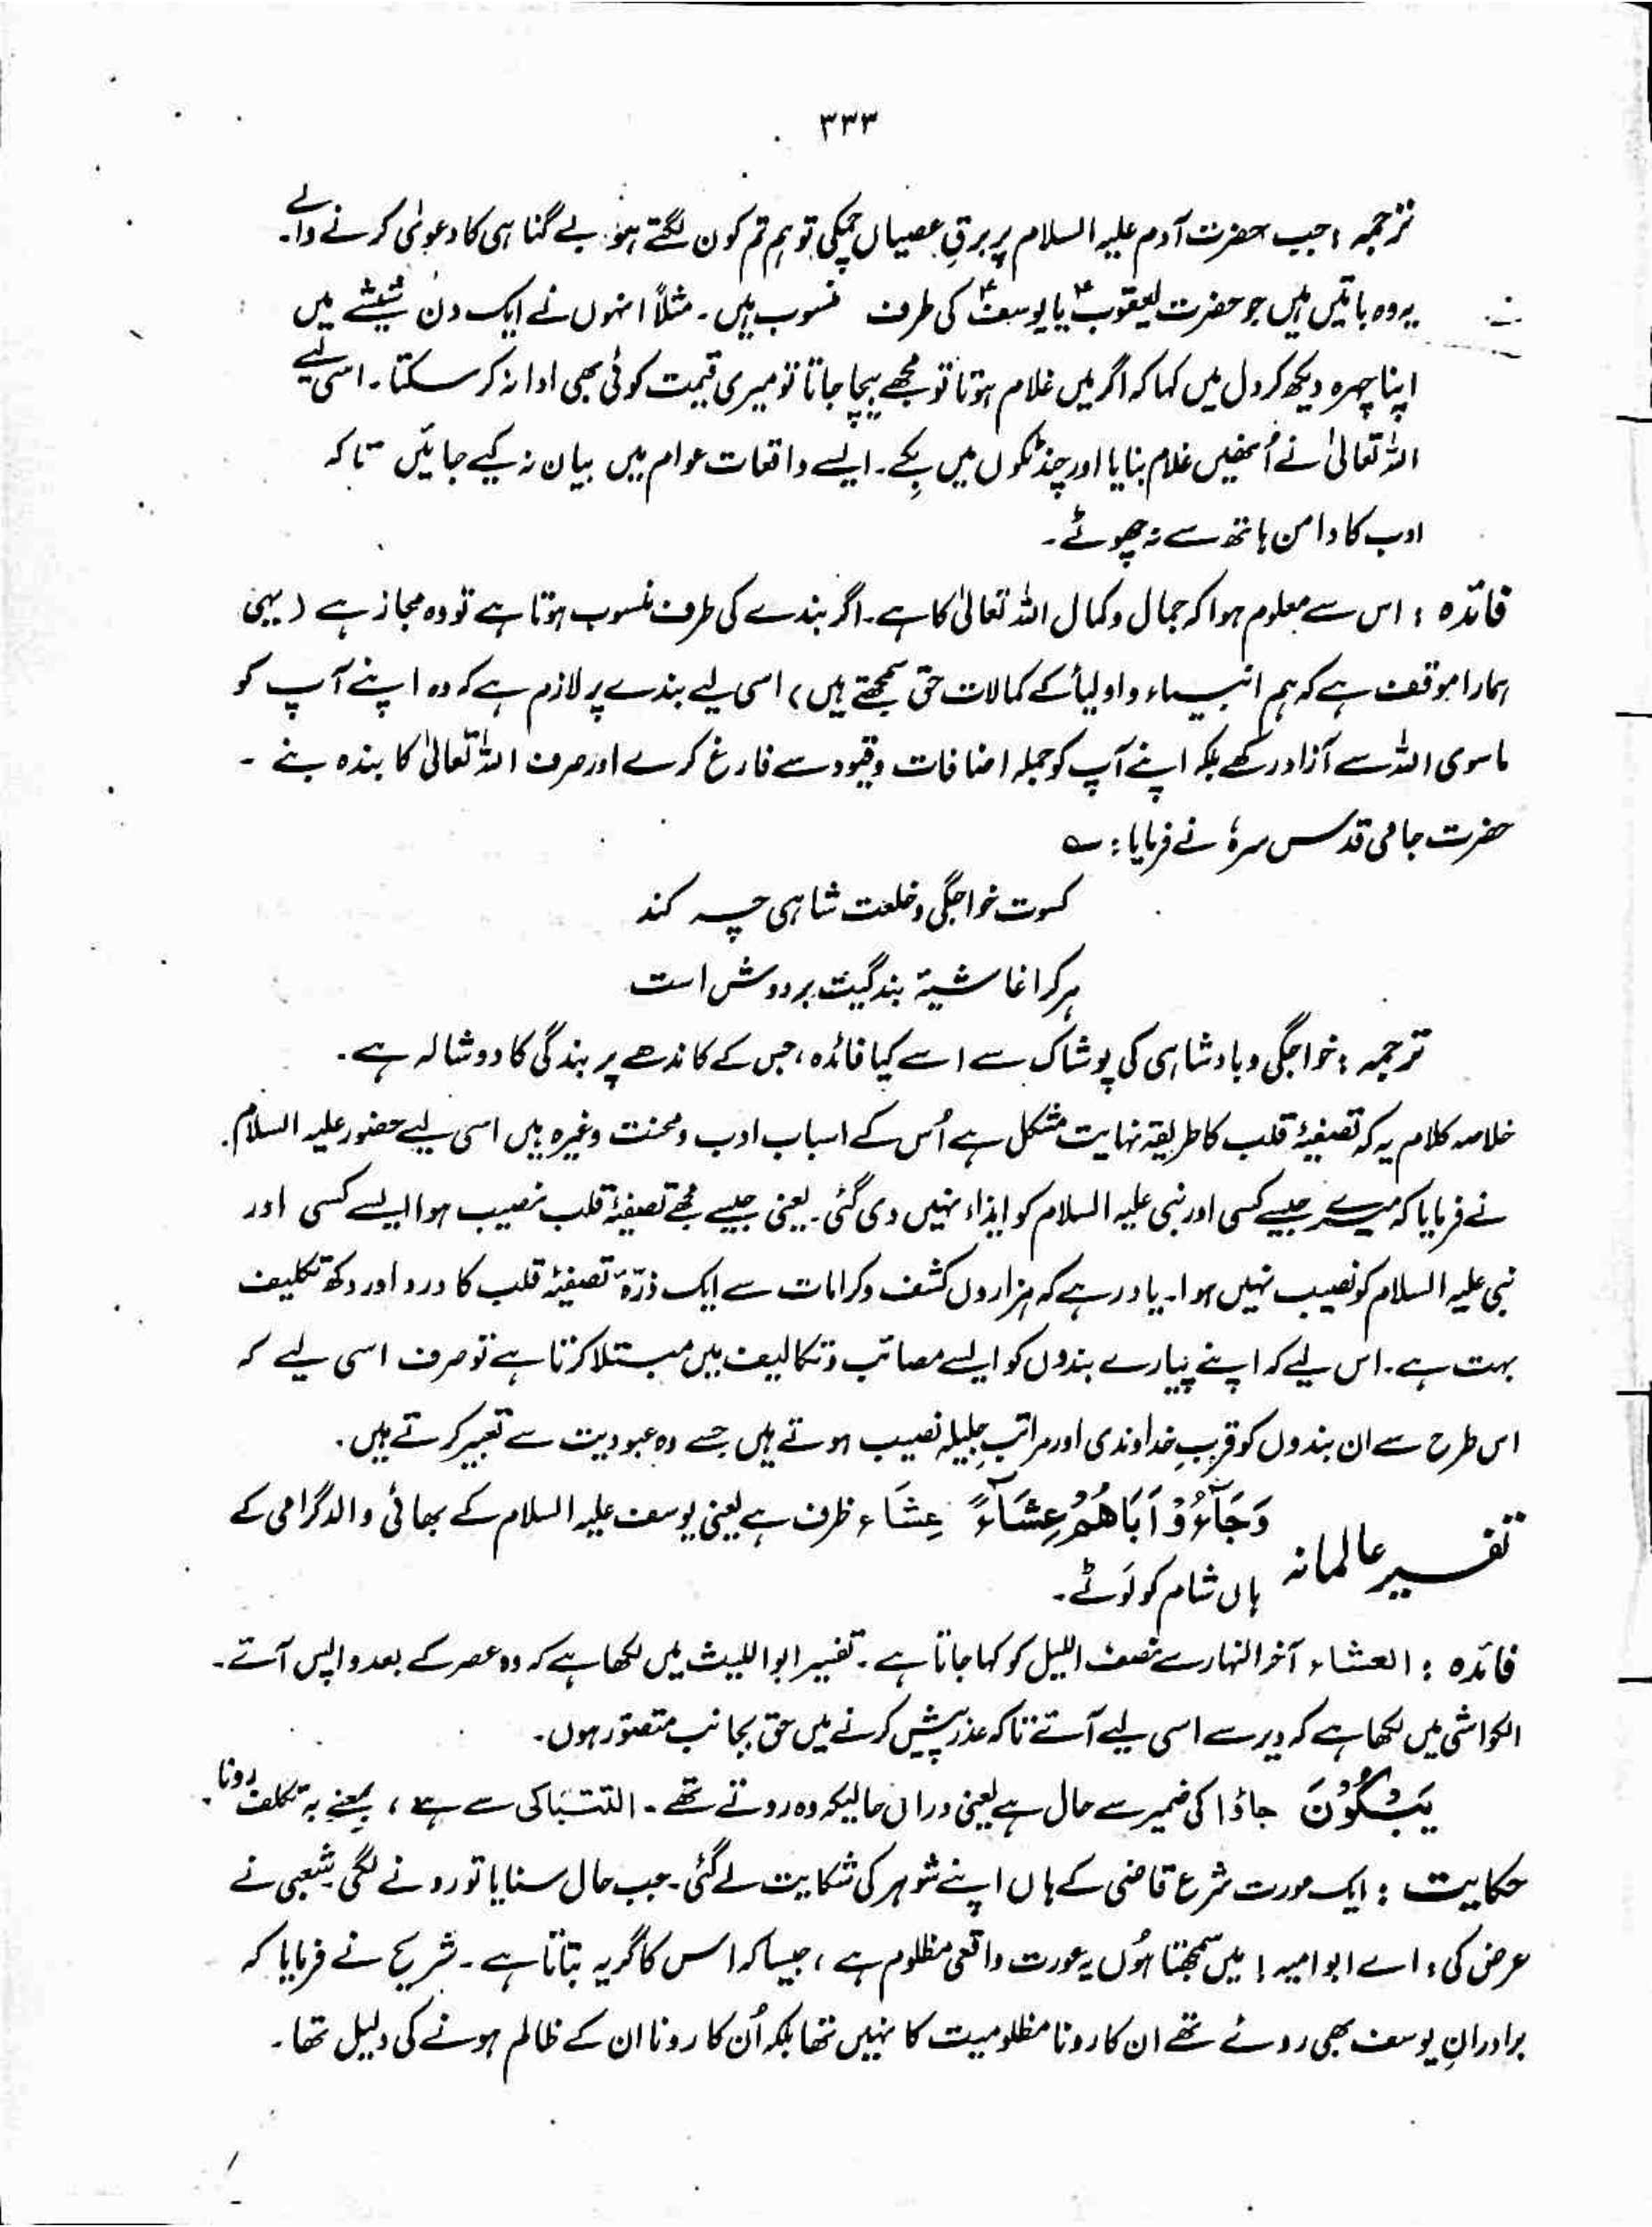 ۳۳۳
ترجمہ : جب حضرت آدم علیہ السلام پر برقِ عصیاں چمکی تو ہم تم کون لگتے ہو بے گناہی کا دعوٰی کرنے والے۔
یہ وہ باتیں ہیں جو حضرت یعقوبؑ یا یوسفؑ کی طرف منسوب ہیں۔ مثلاً انہوں نے ایک دن شیشے میں
اپنا چہرہ دیکھ کر دل میں کہا کہ اگر میں غلام ہوتا تو مجھے بیچا جاتا تو میری قیمت کوئی بھی ادا نہ کر سکتا۔ اسی لیے
اللہ تعالیٰ نے اُنھیں غلام بنایا اور چند ٹکوں میں بِکے۔ ایسے واقعات عوام میں بیان نہ کیے جائیں تاکہ
ادب کا دامن ہاتھ سے نہ چھوٹے۔
فائدہ : اس سے معلوم ہوا کہ جمال و کمال اللہ تعالیٰ کا ہے۔ اگر بندے کی طرف منسوب ہوتا ہے تو وہ مجاز ہے (یہی
ہمارا موقف ہے کہ ہم انبیاء و اولیاؑ کے کمالات حق سمجھتے ہیں) اسی لیے بندے پر لازم ہے کہ وہ اپنے آپ کو
ماسوی اللہ سے آزاد رکھے بلکہ اپنے آپ کو جملہ اضافات و قیود سے فارغ کرے اور صرف اللہ تعالیٰ کا بندہ بنے۔
حضرت جامی قدس سرہٗ نے فرمایا : ؎
کسوت خواجگی و خلعت شاہی چہ کند
ہر کرا غاشیۂ بندگیت بر دوش است
ترجمہ : خواجگی و بادشاہی کی پوشاک سے اسے کیا فائدہ ، جس کے کاندھے پر بندگی کا دوشالہ ہے۔
خلاصہ کلام یہ کہ تصفیۂ قلب کا طریقہ نہایت مشکل ہے اُس کے اسباب ادب و محنت وغیرہ ہیں اسی لیے حضور علیہ السلام
نے فرمایا کہ میرے جیسے کسی اور نبی علیہ السلام کو ایذاء نہیں دی گئی۔ یعنی جیسے مجھے تصفیۂ قلب نصیب ہوا ایسے کسی اور
نبی علیہ السلام کو نصیب نہیں ہوا۔ یاد رہے کہ ہزاروں کشف و کرامات سے ایک ذرّہ تصفیۂ قلب کا درد اور دکھ تکلیف
بہت ہے۔ اس لیے کہ اپنے پیارے بندوں کو ایسے مصائب و تکالیف میں مبتلا کرتا ہے تو صرف اسی لیے کہ
اس طرح سے ان بندوں کو قربِ خداوندی اور مراتبِ جلیلہ نصیب ہوتے ہیں جسے وہ عبودیت سے تعبیر کرتے ہیں۔
تفسیر عالمانہ وَجَآءُوْٓ اَبَاهُمْ عِشَآءً عِشَاء ظرف ہے یعنی یوسف علیہ السلام کے بھائی والد گرامی کے
ہاں شام کو لوٹے۔
فائدہ : العشاء آخر النہار سے نصف اللیل کو کہا جاتا ہے۔ تفسیر ابو اللیث میں لکھا ہے کہ وہ عصر کے بعد واپس آئے۔
الکواشی میں لکھا ہے کہ دیر سے اسی لیے آئے تاکہ عذر پیش کرنے میں حق بجانب متصوّر ہوں۔
یَبْکُوْنَ جاؤا کی ضمیر سے حال ہے یعنی دراں حالیکہ وہ روتے تھے۔ التباکی سے ہے ، بمعنے بہ تکلف رونا۔
حکایت : ایک عورت شرع قاضی کے ہاں اپنے شوہر کی شکایت لے گئی۔ جب حال سنایا تو رونے لگی۔ شعبی نے
عرض کی : اے ابو امیہ ! میں سمجھتا ہُوں یہ عورت واقعی مظلوم ہے ، جیسا کہ اس کا گریہ بتاتا ہے۔ شریح نے فرمایا کہ
برادرانِ یوسف بھی روئے تھے ان کا رونا مظلومیت کا نہیں تھا بلکہ اُن کا رونا ان کے ظالم ہونے کی دلیل تھا۔